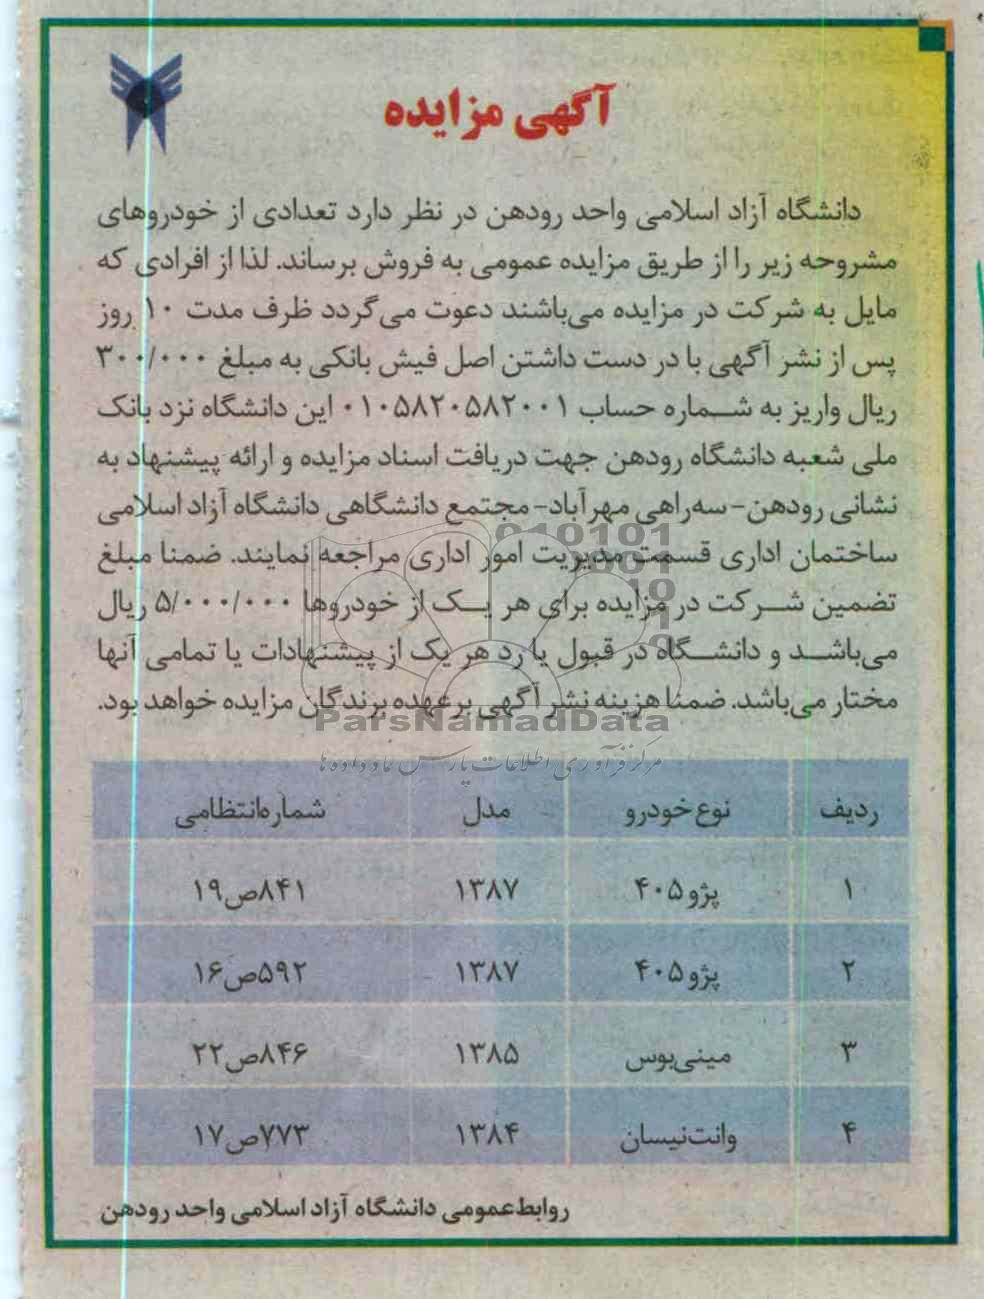 آگهی مزایده
دانشگاه آزاد اسلامی واحد رودهن در نظر دارد تعدادی از خودروهای
مشروحه زیر را از طریق مزایده عمومی به فروش برساند. لذا از افرادی که
مایل به شرکت در مزایده می‌باشند دعوت می‌گردد ظرف مدت ۱۰ روز
پس از نشر آگهی با در دست داشتن اصل فیش بانکی به مبلغ ۳۰۰/۰۰۰
ریال واریز به شماره حساب ۰۱۰۵۸۲۰۵۸۲۰۰۱ این دانشگاه نزد بانک
ملی شعبه دانشگاه رودهن جهت دریافت اسناد مزایده و ارائه پیشنهاد به
نشانی رودهن-سه‌راهی مهرآباد-مجتمع دانشگاهی دانشگاه آزاد اسلامی
ساختمان اداری قسمت مدیریت امور اداری مراجعه نمایند. ضمنا مبلغ
تضمین شرکت در مزایده برای هر یک از خودروها ۵/۰۰۰/۰۰۰ ریال
می‌باشد و دانشگاه در قبول یا رد هر یک از پیشنهادات یا تمامی آنها
مختار می‌باشد. ضمنا هزینه نشر آگهی برعهده برندگان مزایده خواهد بود.
ParsNamadData
مرکز فرآوری اطلاعات پارس نماد داده‌ها
ردیف نوع خودرو مدل شماره‌انتظامی
۱ پژو ۴۰۵ ۱۳۸۷ ۸۴۱ص۱۹
۲ پژو ۴۰۵ ۱۳۸۷ ۵۹۲ص۱۶
۳ مینی‌بوس ۱۳۸۵ ۸۴۶ص۲۲
۴ وانت‌نیسان ۱۳۸۴ ۷۷۳ص۱۷
روابط‌عمومی دانشگاه آزاد اسلامی واحد رودهن